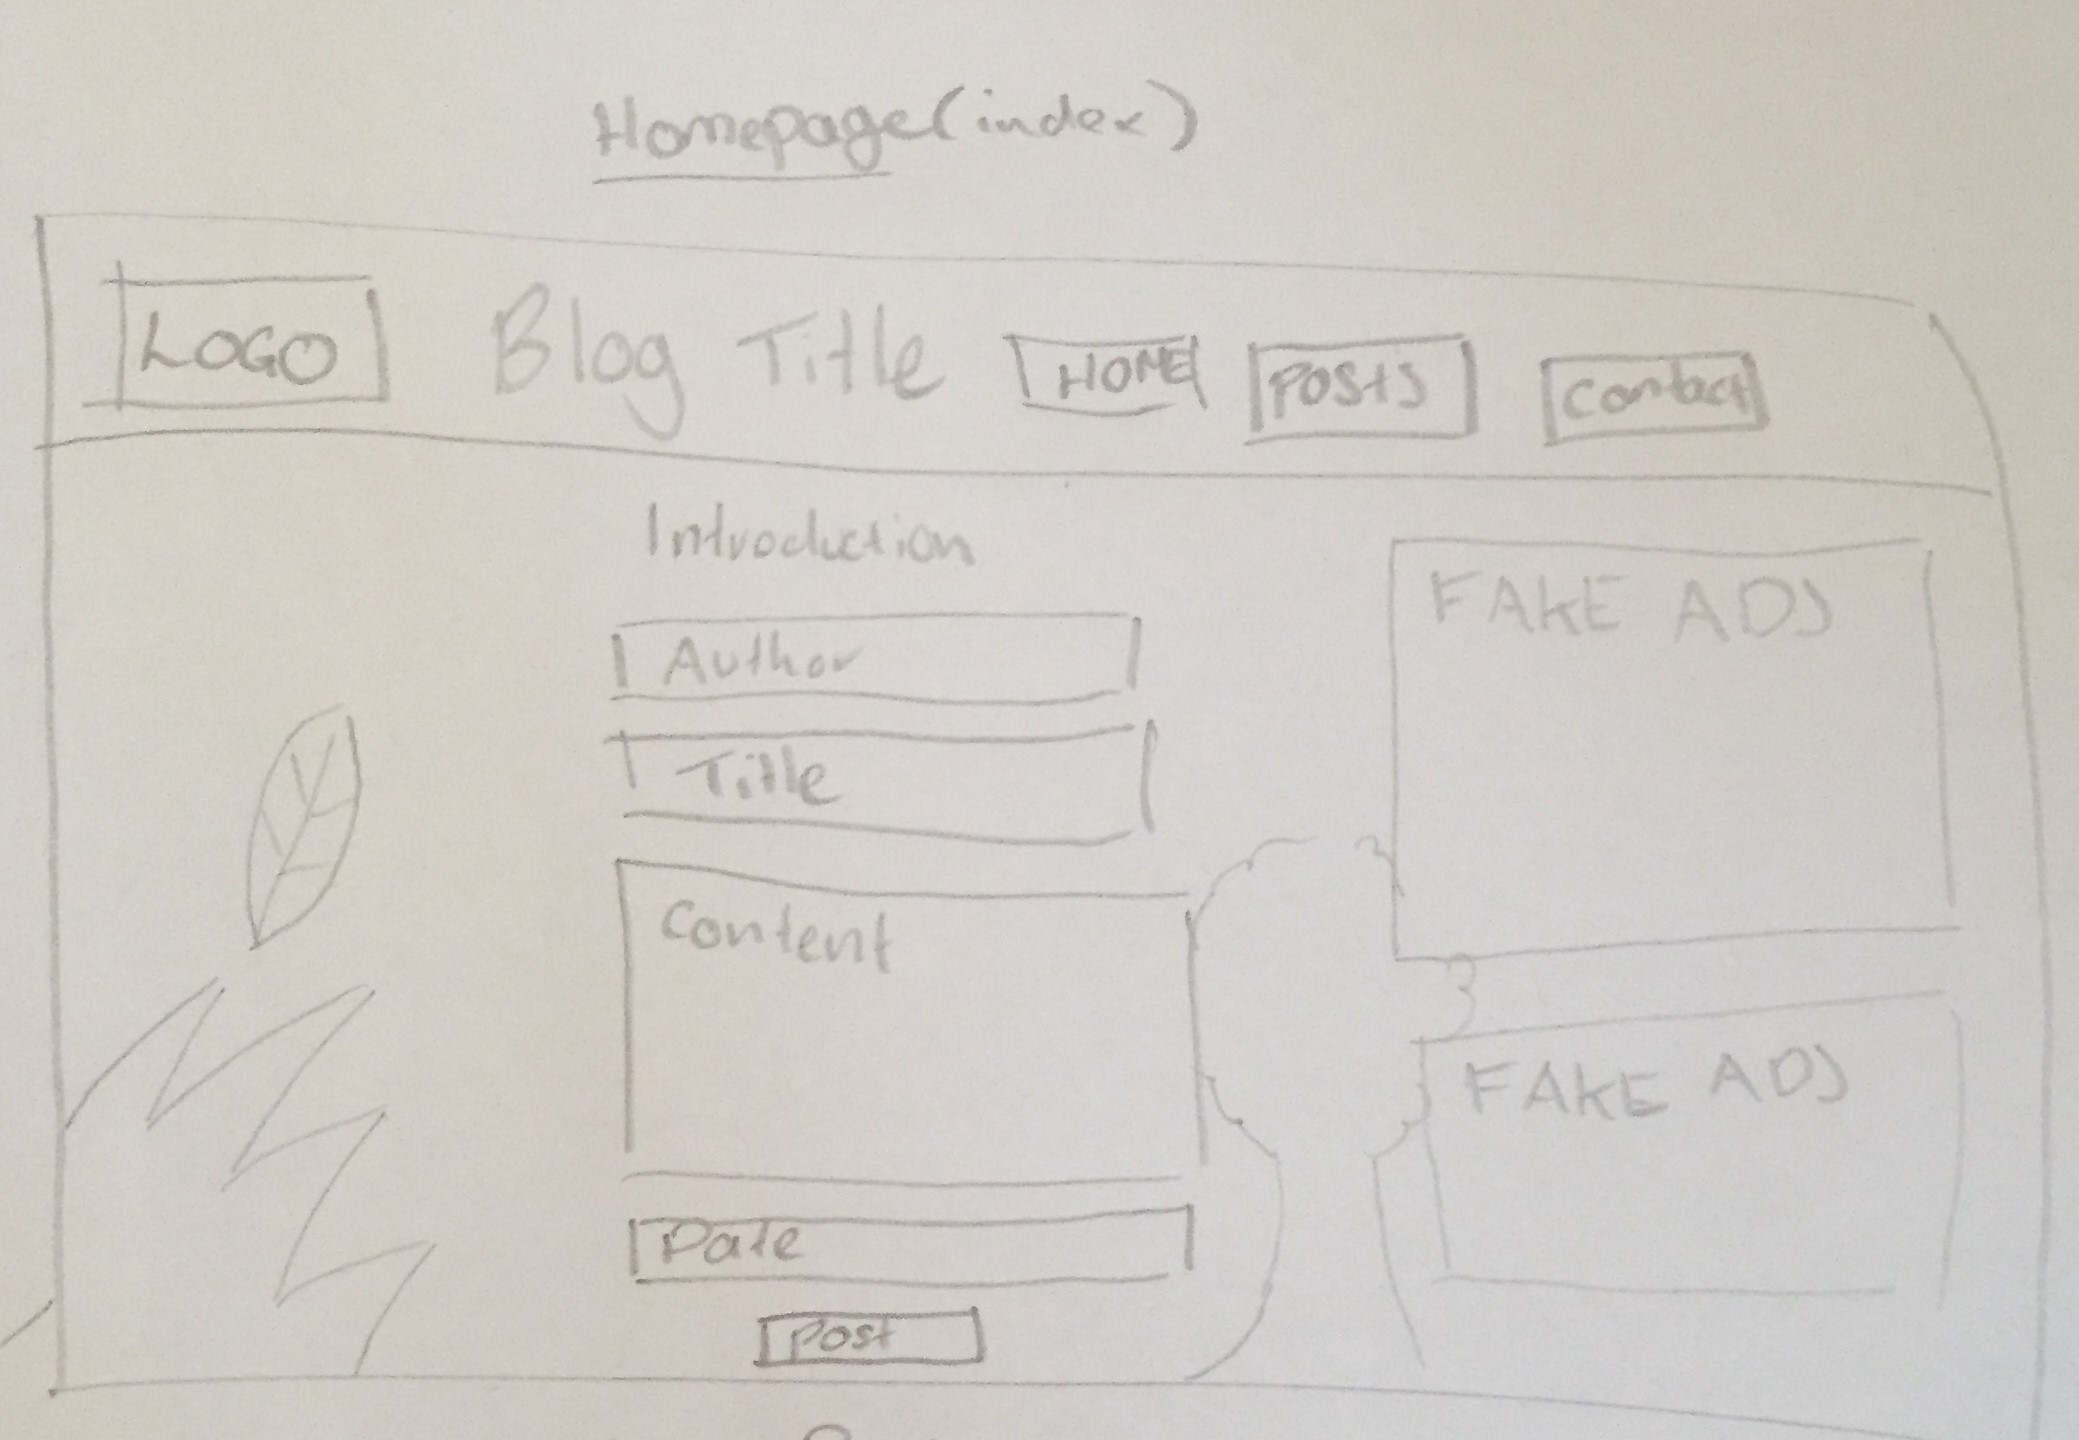 Homepage (index)
LOGO Blog Title HOME POSTS Contact
Introduction
Author
Title
Content
Date
Post
FAKE ADS
FAKE ADS